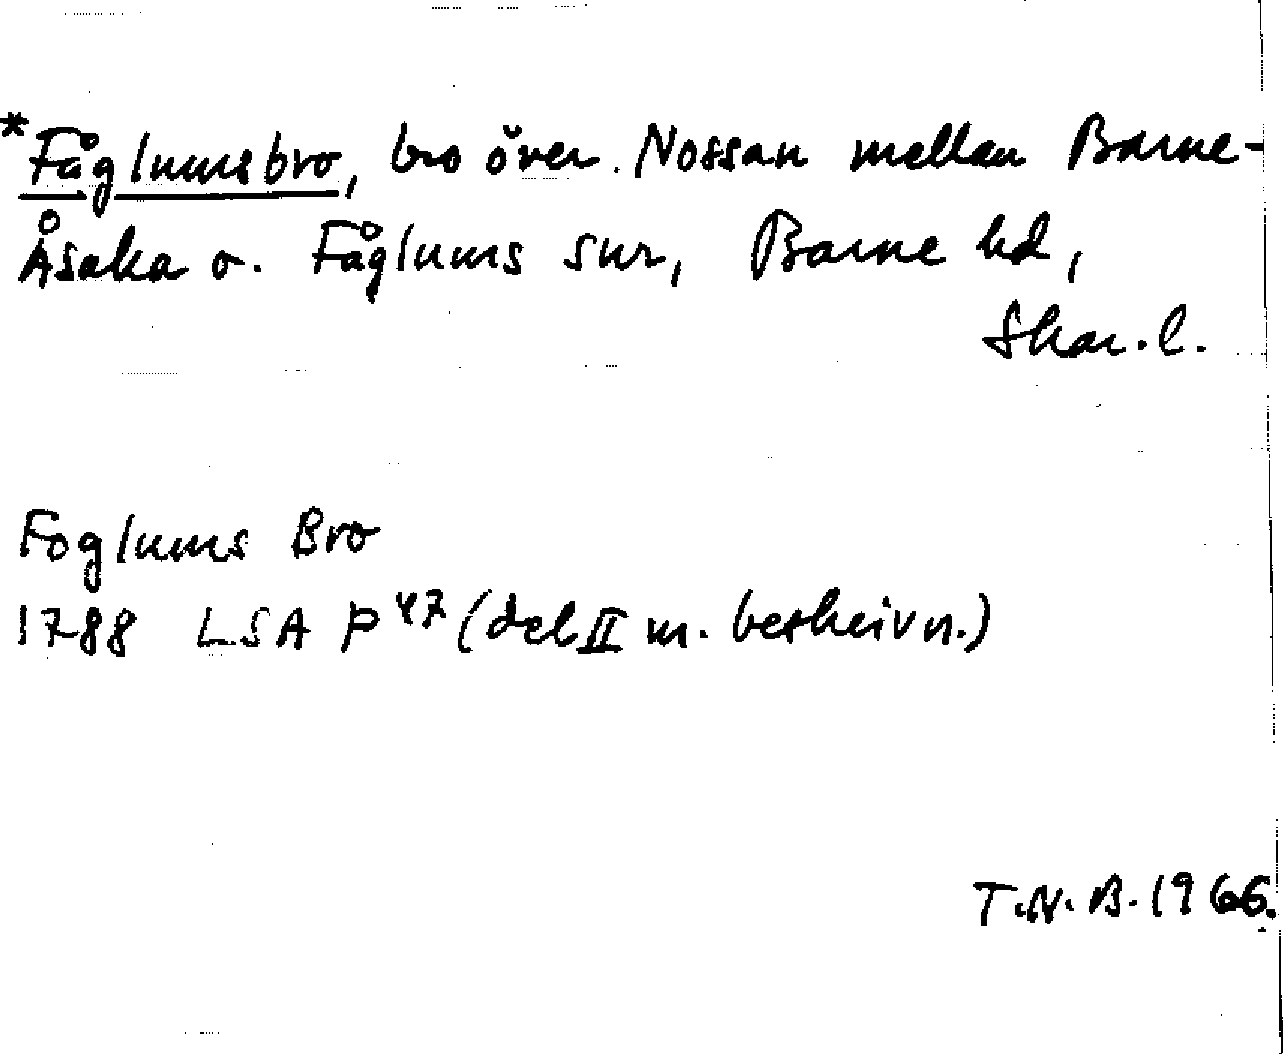 *Fåglumsbro, bro över Nossan mellan Barne-
Åsaka o. Fåglums snr, Barne hd,
Skar.l.
Foglums Bro
1788 LSA P 47 (del II m. beskrivn.)
T.N.B. 1966.